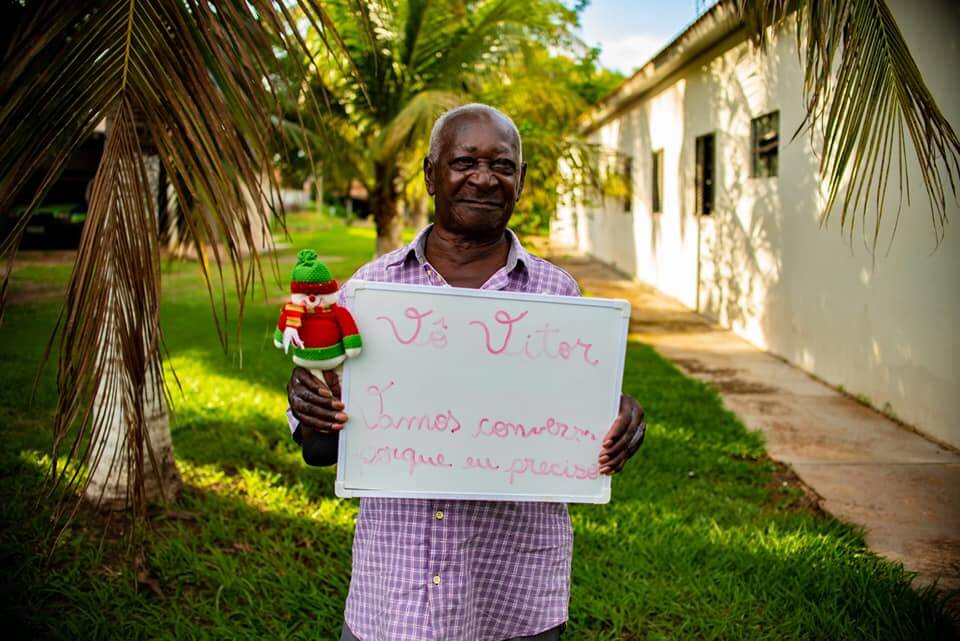 Vô Vitor
Vamos conversar
porque eu preciso